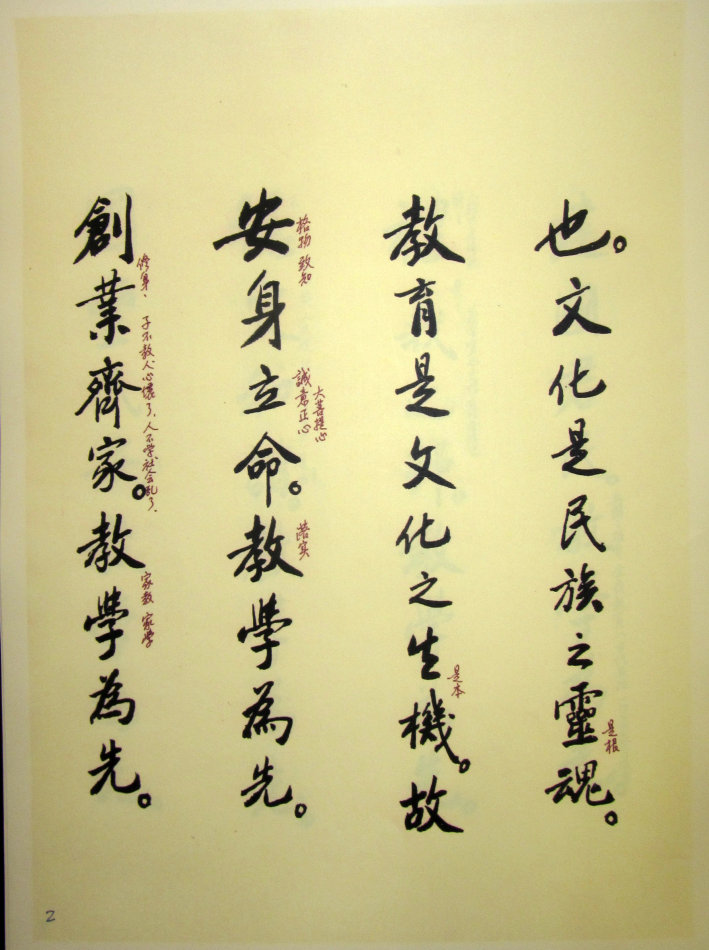 也。文化是民族之靈魂。
是根
教育是文化之生機。故
是本
安身立命。教學為先。
格物 致知
誠意正心
大菩提心
落实
創業齊家。教學為先。
修身、子不教人心壞了、人不學社会乱了、
家教 家学
2